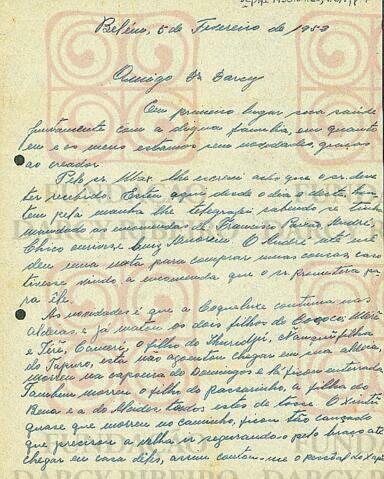 Belém, 5 de Fevereiro de 1953
Amigo Dr Darcy
Em primeiro lugar sua saúde
juntamente com a digna familia, em quanto
eu e os meus estamos sem novidades, graças
ao creador.
Pelo sr. Max. lhe escrevi acho que o sr. deve
ter recebido. Estou aqui desde o dia 2 deste, hon
tem pela manhã lhe telegrafei sabendo se tinha
mandado as encomendas de Francisco
Chico ourives e Luiz. O André até me
deu uma nota para comprar umas cousas, caso
tivesse vindo, a encomenda que o sr. prometera pa
ra êle.
As novidades é que a Coqueluxe continua nas
aldeias, e já matou os dois filhos de
e o filho do filha
do Tapuro, esta não aguentou chegar em sua aldeia,
morreu na capoeira do Domingos e lá ficou enterrada.
Tambem morreu o filho do Passarinho, a filha do
e a do todos estes de tosse. O
quase que morreu no caminho, ficou tão cançado
que precisou a velha ir segurando-o pelo braço até
chegar em casa dêles, assim contou-me o
FUNDAÇÃO
DARCY RIBEIRO